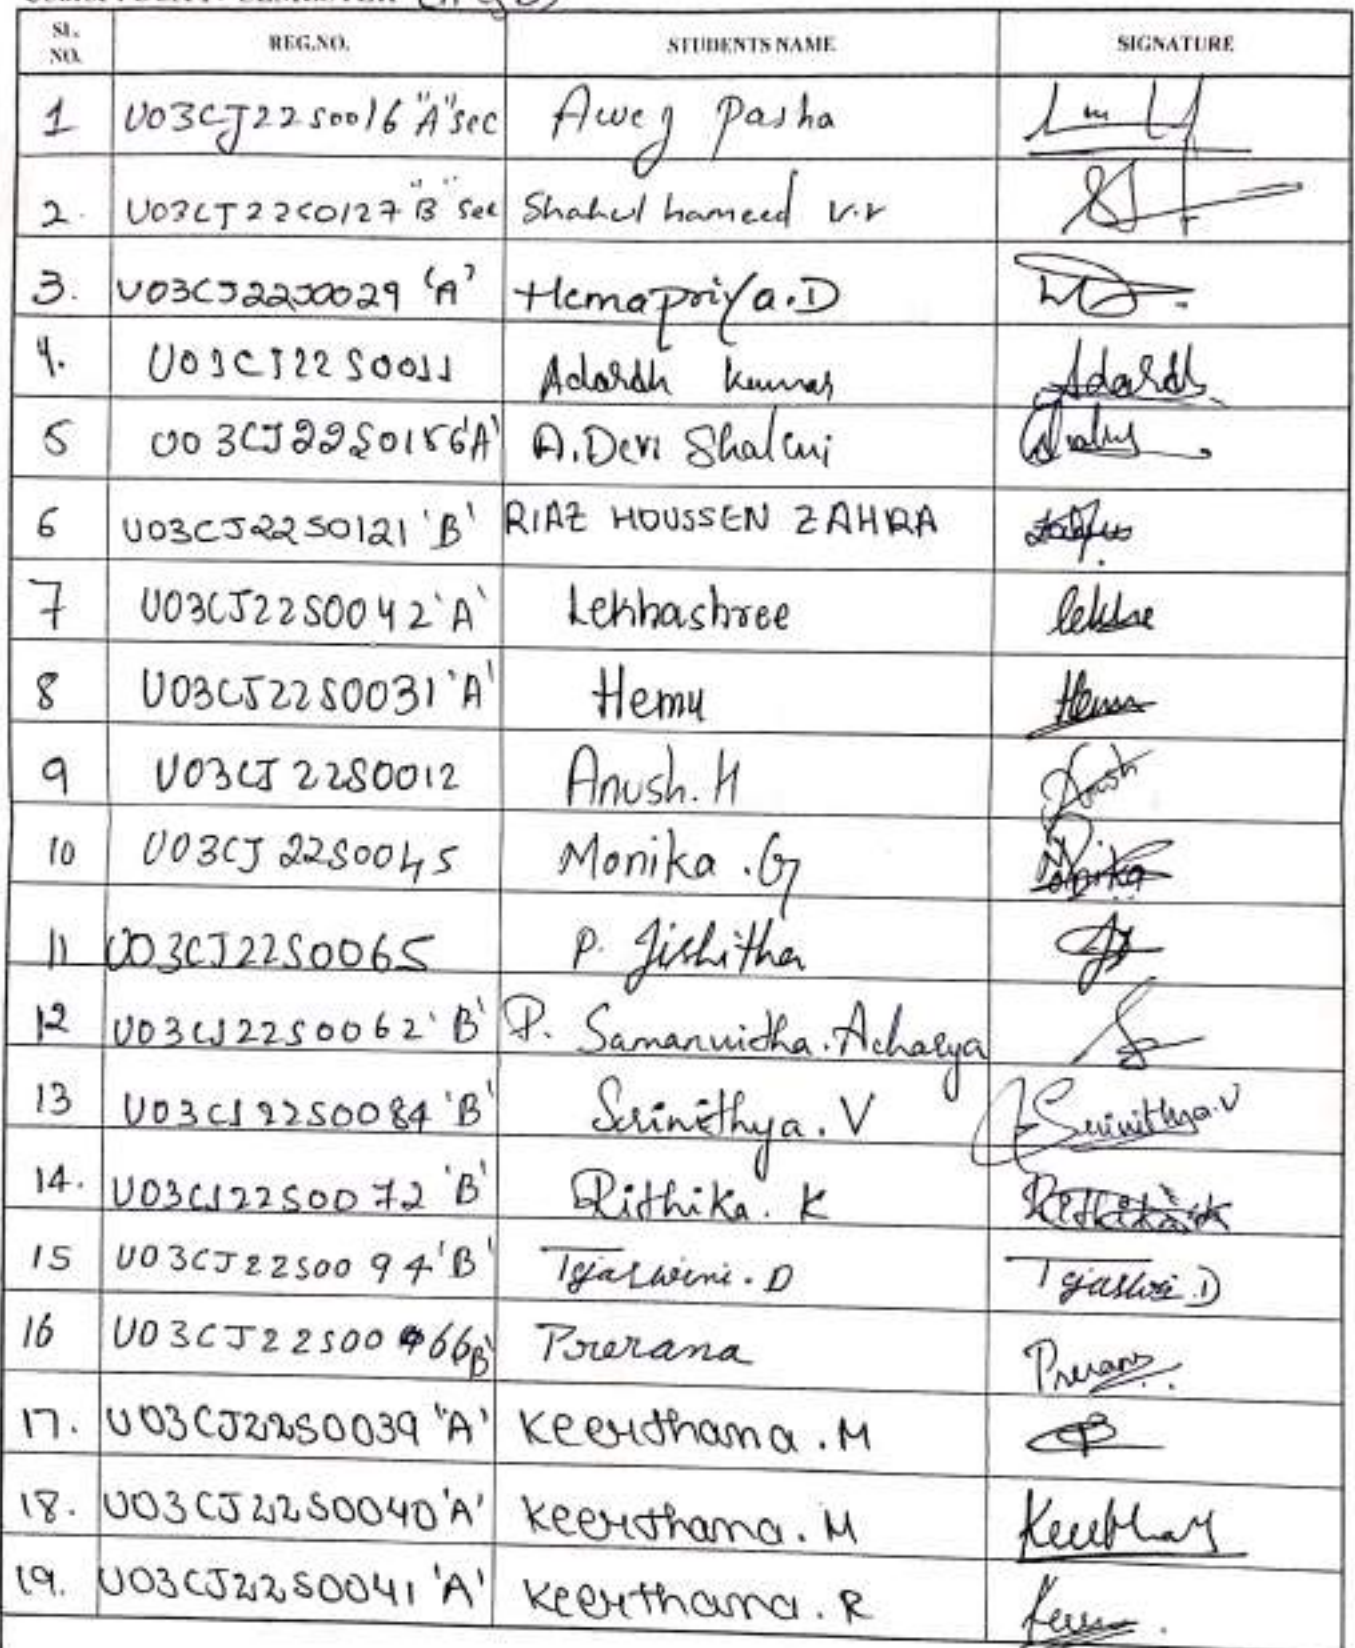 SL. NO. REG.NO. STUDENTS NAME SIGNATURE
1 U03CJ22S0016 "A" sec Aweg Pasha
2. U03CJ22S0127 "B" sec Shahul hameed V.V
3. U03CJ22S0029 'A' Hemapriya.D
4. U03CJ22S0011 Adarsh Kumar Adarsh
5 U03CJ22S0156 'A' A.Devi Shalini
6 U03CJ22S0121 'B' RIAZ HOUSSEN ZAHRA
7 U03CJ22S0042 'A' Lekhashree
8 U03CJ22S0031 'A' Hemu Hemu
9 U03CJ22S0012 Anush.H Anush
10 U03CJ22S0045 Monika.G Monika
11 U03CJ22S0065 P. Jishitha
12 U03CJ22S0062 'B' P. Samanvitha.Acharya
13 U03CJ22S0084 'B' Srinithya.V Srinithya.V
14. U03CJ22S0072 'B' Rithika.K Rithika.K
15 U03CJ22S0094 'B' Tejaswini.D Tejaswi.D
16 U03CJ22S0066 B' Prerana Prerana
17. U03CJ22S0039 "A' Keerthana.M
18. U03CJ22S0040 'A' Keerthana.M
19. U03CJ22S0041 'A' Keerthana.R